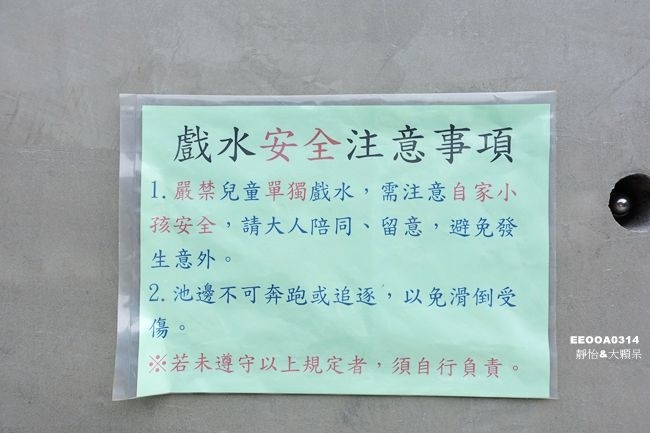 戲水安全注意事項
1. 嚴禁兒童單獨戲水，需注意自家小
孩安全，請大人陪同、留意，避免發
生意外。
2. 池邊不可奔跑或追逐，以免滑倒受
傷。
※若未遵守以上規定者，須自行負責。
EEOOA0314
靜怡&大顆呆